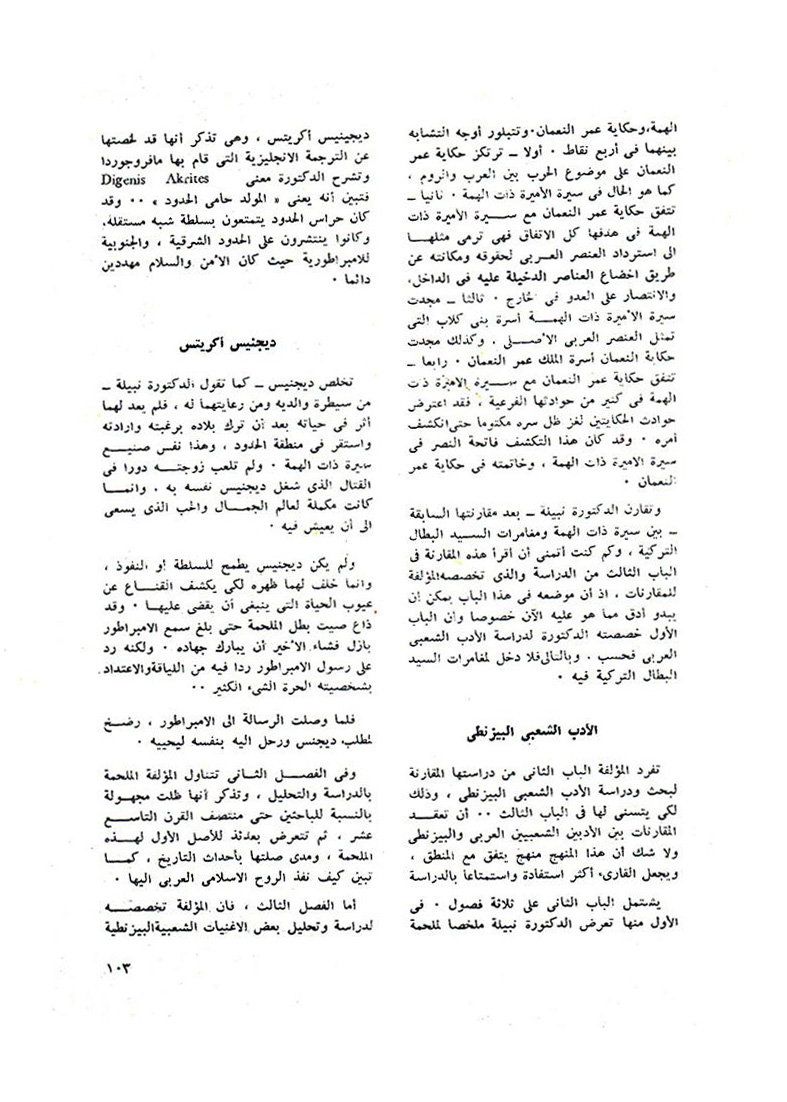 الهمة، وحكاية عمر النعمان. وتتبلور أوجه التشابه
بينهما فى أربع نقاط . أولا ــ ترتكز حكاية عمر
النعمان على موضوع الحرب بين العرب والروم ،
كما هو الحال فى سيرة الأميرة ذات الهمة . ثانيا ــ
تتفق حكاية عمر النعمان مع سيرة الأميرة ذات
الهمة فى هدفها كل الاتفاق فهى ترمى مثلها
الى استرداد العنصر العربى لحقوقه ومكانته عن
طريق اخضاع العناصر الدخيلة عليه فى الداخل،
والانتصار على العدو فى خارج . ثالثا ــ مجدت
سيرة الأميرة ذات الهمة أسرة بنى كلاب التى
تمثل العنصر العربى الأصلى . وكذلك مجدت
حكاية النعمان أسرة الملك عمر النعمان . رابعا ــ
تتفق حكاية عمر النعمان مع سيرة الاميرة ذات
الهمة فى كثير من حوادثها الفرعية ، فقد اعترض
حوادث الحكايتين لغز ظل سره مكتوما حتى انكشف
أمره . وقد كان هذا التكشف فاتحة النصر فى
سيرة الاميرة ذات الهمة ، وخاتمته فى حكاية عمر
النعمان .
وتقارن الدكتورة نبيلة ــ بعد مقارنتها السابقة
ــ بين سيرة ذات الهمة ومغامرات السيد البطال
التركية ، وكم كنت أتمنى أن أقرأ هذه المقارنة فى
الباب الثالث من الدراسة والذى تخصصه المؤلفة
للمقارنات ، اذ أن موضعه فى هذا الباب يمكن أن
يبدو أدق مما هو عليه الآن خصوصا وأن الباب
الأول خصصته الدكتورة لدراسة الأدب الشعبى
العربى فحسب . وبالتالى فلا دخل لمغامرات السيد
البطال التركية فيه .
الأدب الشعبى البيزنطى
تفرد المؤلفة الباب الثانى من دراستها المقارنة
لبحث ودراسة الأدب الشعبى البيزنطى ، وذلك
لكى يتسنى لها فى الباب الثالث .. أن تعقد
المقارنات بين الأدبين الشعبيين العربى والبيزنطى
ولا شك أن هذا المنهج منهج يتفق مع المنطق ،
ويجعل القارىء أكثر استفادة واستمتاعا بالدراسة
يشتمل الباب الثانى على ثلاثة فصول . فى
الأول منها تعرض الدكتورة نبيلة ملخصا لملحمة
ديجينيس أكريتس ، وهى تذكر أنها قد لخصتها
عن الترجمة الانجليزية التى قام بها مافروجوردا
وتشرح الدكتورة معنى Digenis Akrites
فتبين أنه يعنى « المولد حامى الحدود » .. وقد
كان حراس الحدود يتمتعون بسلطة شبه مستقلة.
وكانوا ينتشرون على الحدود الشرقية ، والجنوبية
للامبراطورية حيث كان الأمن والسلام مهددين
دائما .
ديجنيس أكريتس
تخلص ديجنيس ــ كما تقول الدكتورة نبيلة ــ
من سيطرة والديه ومن رعايتهما له ، فلم يعد لهما
أثر فى حياته بعد أن ترك بلاده برغبته وارادته
واستقر فى منطقة الحدود ، وهذا نفس صنيع
سيرة ذات الهمة . ولم تلعب زوجته دورا فى
القتال الذى شغل ديجنيس نفسه به . وانما
كانت مكملة لعالم الجمال والحب الذى يسعى
الى أن يعيش فيه .
ولم يكن ديجنيس يطمح للسلطة أو النفوذ ،
وانما خلف لهما ظهره لكى يكشف القناع عن
عيوب الحياة التى ينبغى أن يقضى عليها . وقد
ذاع صيت بطل الملحمة حتى بلغ سمع الامبراطور
بازل فشاء الأخير أن يبارك جهاده . ولكنه رد
على رسول الامبراطور ردا فيه من اللياقة والاعتداد
بشخصيته الحرة الشىء الكثير ..
فلما وصلت الرسالة الى الامبراطور ، رضخ
لمطلب ديجنس ورحل اليه بنفسه ليحييه .
وفى الفصل الثانى تتناول المؤلفة الملحمة
بالدراسة والتحليل ، وتذكر أنها ظلت مجهولة
بالنسبة للباحثين حتى منتصف القرن التاسع
عشر ، ثم تتعرض بعدئذ للأصل الأول لهذه
الملحمة ، ومدى صلتها بأحداث التاريخ ، كما
تبين كيف نفذ الروح الاسلامى العربى اليها .
أما الفصل الثالث ، فان المؤلفة تخصصه
لدراسة وتحليل بعض الاغنيات الشعبية البيزنطية
١٠٣